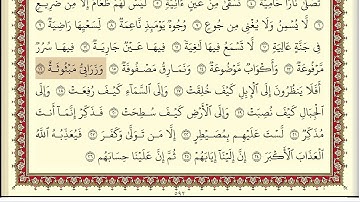 تَصْلَىٰ نَارًا حَامِيَةً ۝٤ تُسْقَىٰ مِنْ عَيْنٍ ءَانِيَةٍ ۝٥ لَّيْسَ لَهُمْ طَعَامٌ إِلَّا مِن ضَرِيعٍ
۝٦ لَّا يُسْمِنُ وَلَا يُغْنِي مِن جُوعٍ ۝٧ وُجُوهٌ يَوْمَئِذٍ نَّاعِمَةٌ ۝٨ لِّسَعْيِهَا رَاضِيَةٌ ۝٩
فِي جَنَّةٍ عَالِيَةٍ ۝١٠ لَّا تَسْمَعُ فِيهَا لَٰغِيَةً ۝١١ فِيهَا عَيْنٌ جَارِيَةٌ ۝١٢ فِيهَا سُرُرٌ
مَّرْفُوعَةٌ ۝١٣ وَأَكْوَابٌ مَّوْضُوعَةٌ ۝١٤ وَنَمَارِقُ مَصْفُوفَةٌ ۝١٥ وَزَرَابِيُّ مَبْثُوثَةٌ ۝١٦
أَفَلَا يَنظُرُونَ إِلَى ٱلْإِبِلِ كَيْفَ خُلِقَتْ ۝١٧ وَإِلَى ٱلسَّمَآءِ كَيْفَ رُفِعَتْ ۝١٨ وَإِلَى
ٱلْجِبَالِ كَيْفَ نُصِبَتْ ۝١٩ وَإِلَى ٱلْأَرْضِ كَيْفَ سُطِحَتْ ۝٢٠ فَذَكِّرْ إِنَّمَآ أَنتَ
مُذَكِّرٌ ۝٢١ لَّسْتَ عَلَيْهِم بِمُصَيْطِرٍ ۝٢٢ إِلَّا مَن تَوَلَّىٰ وَكَفَرَ ۝٢٣ فَيُعَذِّبُهُ ٱللَّهُ
ٱلْعَذَابَ ٱلْأَكْبَرَ ۝٢٤ إِنَّ إِلَيْنَآ إِيَابَهُمْ ۝٢٥ ثُمَّ إِنَّ عَلَيْنَا حِسَابَهُم ۝٢٦
٥٩٢